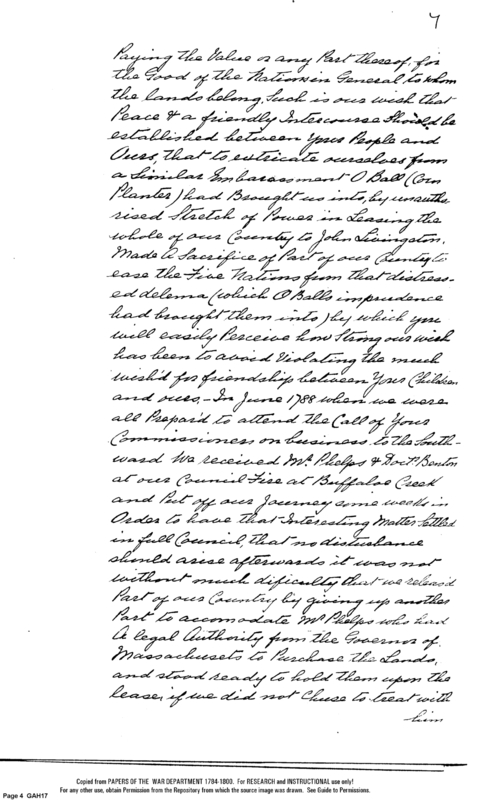 7
Paying the Value or any Part thereof, for
the Good of the Nations in General to whom
the lands belong, Such is our wish that
Peace & a friendly Intercourse Should be
established between Your People and
Ours, that to extricate ourselves from
a Similar Embarassment O Ball (Corn
Planter) had Brought us into, by unautho
rised Stretch of Power in Leasing the
whole of our Country to John Livingston,
Made A Sacrifice of Part of our Country to
ease the Five Nations from that distress-
ed delema (which O Balls imprudence
had brought them into) by which you
will easily Perceive how Strong our wish
has been to avoid Violating the much
wish'd for friendship between Your Children
and ours,- In June 1788 when we were
all Prepar'd to attend the Call of Your
Commissioners on business to the South-
ward We received Mr. Phelps & Doctr. Benton
at our Council Fire at Buffaloe Creek
and Put off our Journey some weeks in
Order to have that Interesting Matter Settled
in full Council, that no disturbance
should arise afterwards it was not
without much dificulty that we releas'd
Part of our Country by giving up another
Part to accomodate Mr Phelps who had
A legal Authority from the Governor of
Massachusets to Purchase the Lands,
and stood ready to hold them upon the
lease, if we did not Chuse to treat with
him
Copied from PAPERS OF THE WAR DEPARTMENT 1784-1800. For RESEARCH and INSTRUCTIONAL use only!
For any other use, obtain Permission from the Repository from which the source image was drawn. See Guide to Permissions.
Page 4 GAH17